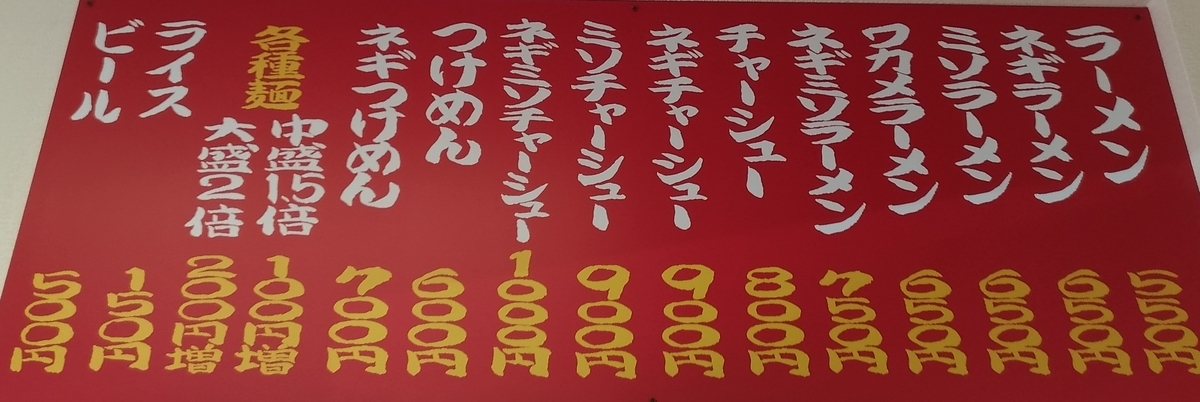 ラーメン
550円
ネギラーメン
650円
ミソラーメン
650円
ワカメラーメン
650円
ネギミソラーメン
750円
チャーシュー
800円
ネギチャーシュー
900円
ミソチャーシュー
900円
ネギミソチャーシュー
1000円
つけめん
600円
ネギつけめん
700円
各種麺
中盛1.5倍
100円増
大盛2倍
200円増
ライス
150円
ビール
500円